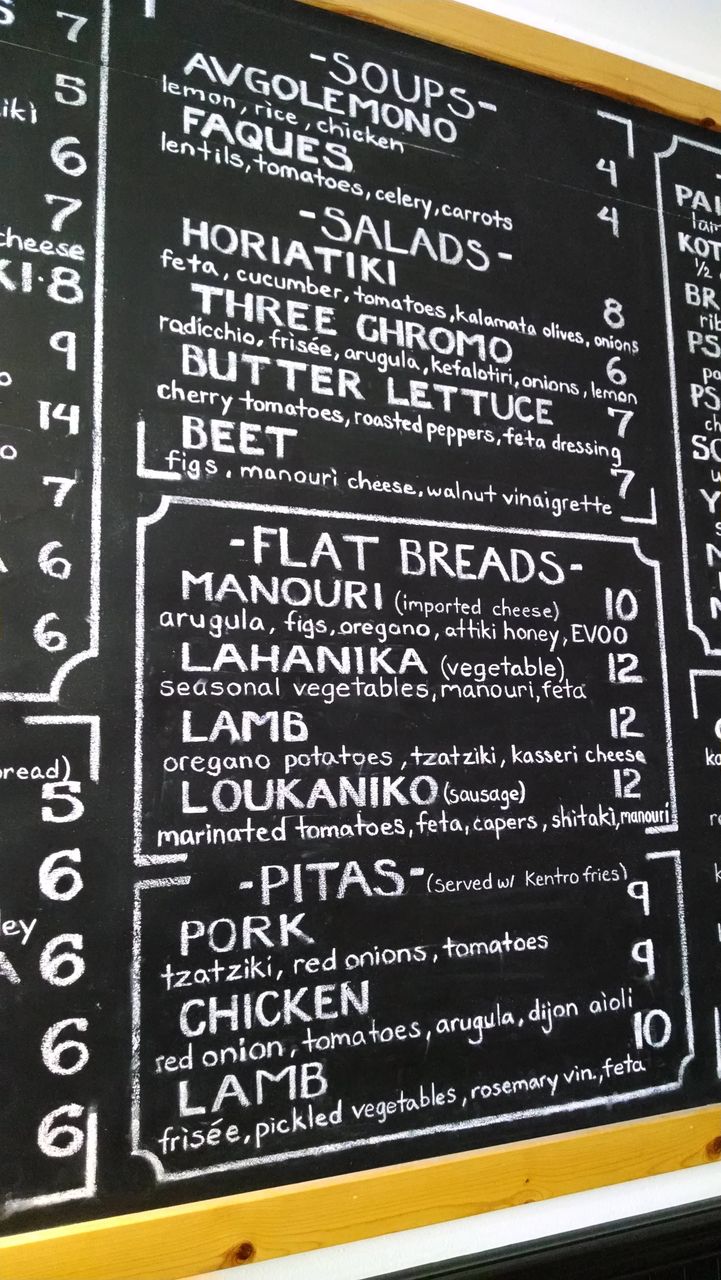 7
5
iki
6
7
cheese
KI·8
9
14
7
6
6
bread)
5
6
ey
A 6
6
6
-SOUPS-
AVGOLEMONO
lemon, rice, chicken 4
FAQUES
lentils, tomatoes, celery, carrots 4
-SALADS-
HORIATIKI 8
feta, cucumber, tomatoes, kalamata olives, onions
THREE CHROMO 6
radicchio, frisée, arugula, kefalotiri, onions, lemon
BUTTER LETTUCE 7
cherry tomatoes, roasted peppers, feta dressing
BEET 7
figs, manouri cheese, walnut vinaigrette
-FLAT BREADS-
MANOURI (imported cheese) 10
arugula, figs, oregano, attiki honey, EVOO
LAHANIKA (vegetable) 12
seasonal vegetables, manouri, feta
LAMB 12
oregano potatoes, tzatziki, kasseri cheese
LOUKANIKO (sausage) 12
marinated tomatoes, feta, capers, shitaki, manouri
-PITAS- (served w/ Kentro fries)
PORK 9
tzatziki, red onions, tomatoes
CHICKEN 9
red onion, tomatoes, arugula, dijon aioli
LAMB 10
frisée, pickled vegetables, rosemary vin., feta
PAI
KOT
1/2
BR
rib
PS
PS
ch
SO
Y